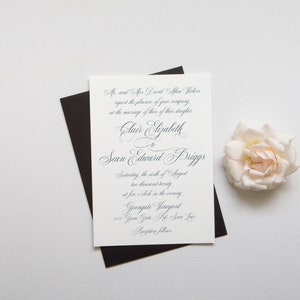 Mr. and Mrs. David
request the pleasure of your company
at the marriage of their daughter
Clair Elizabeth
&
Sean Edward Briggs
Saturday, the sixth of August
two thousand twenty
at five o'clock in the evening
Greengate Vineyard
Reception follows